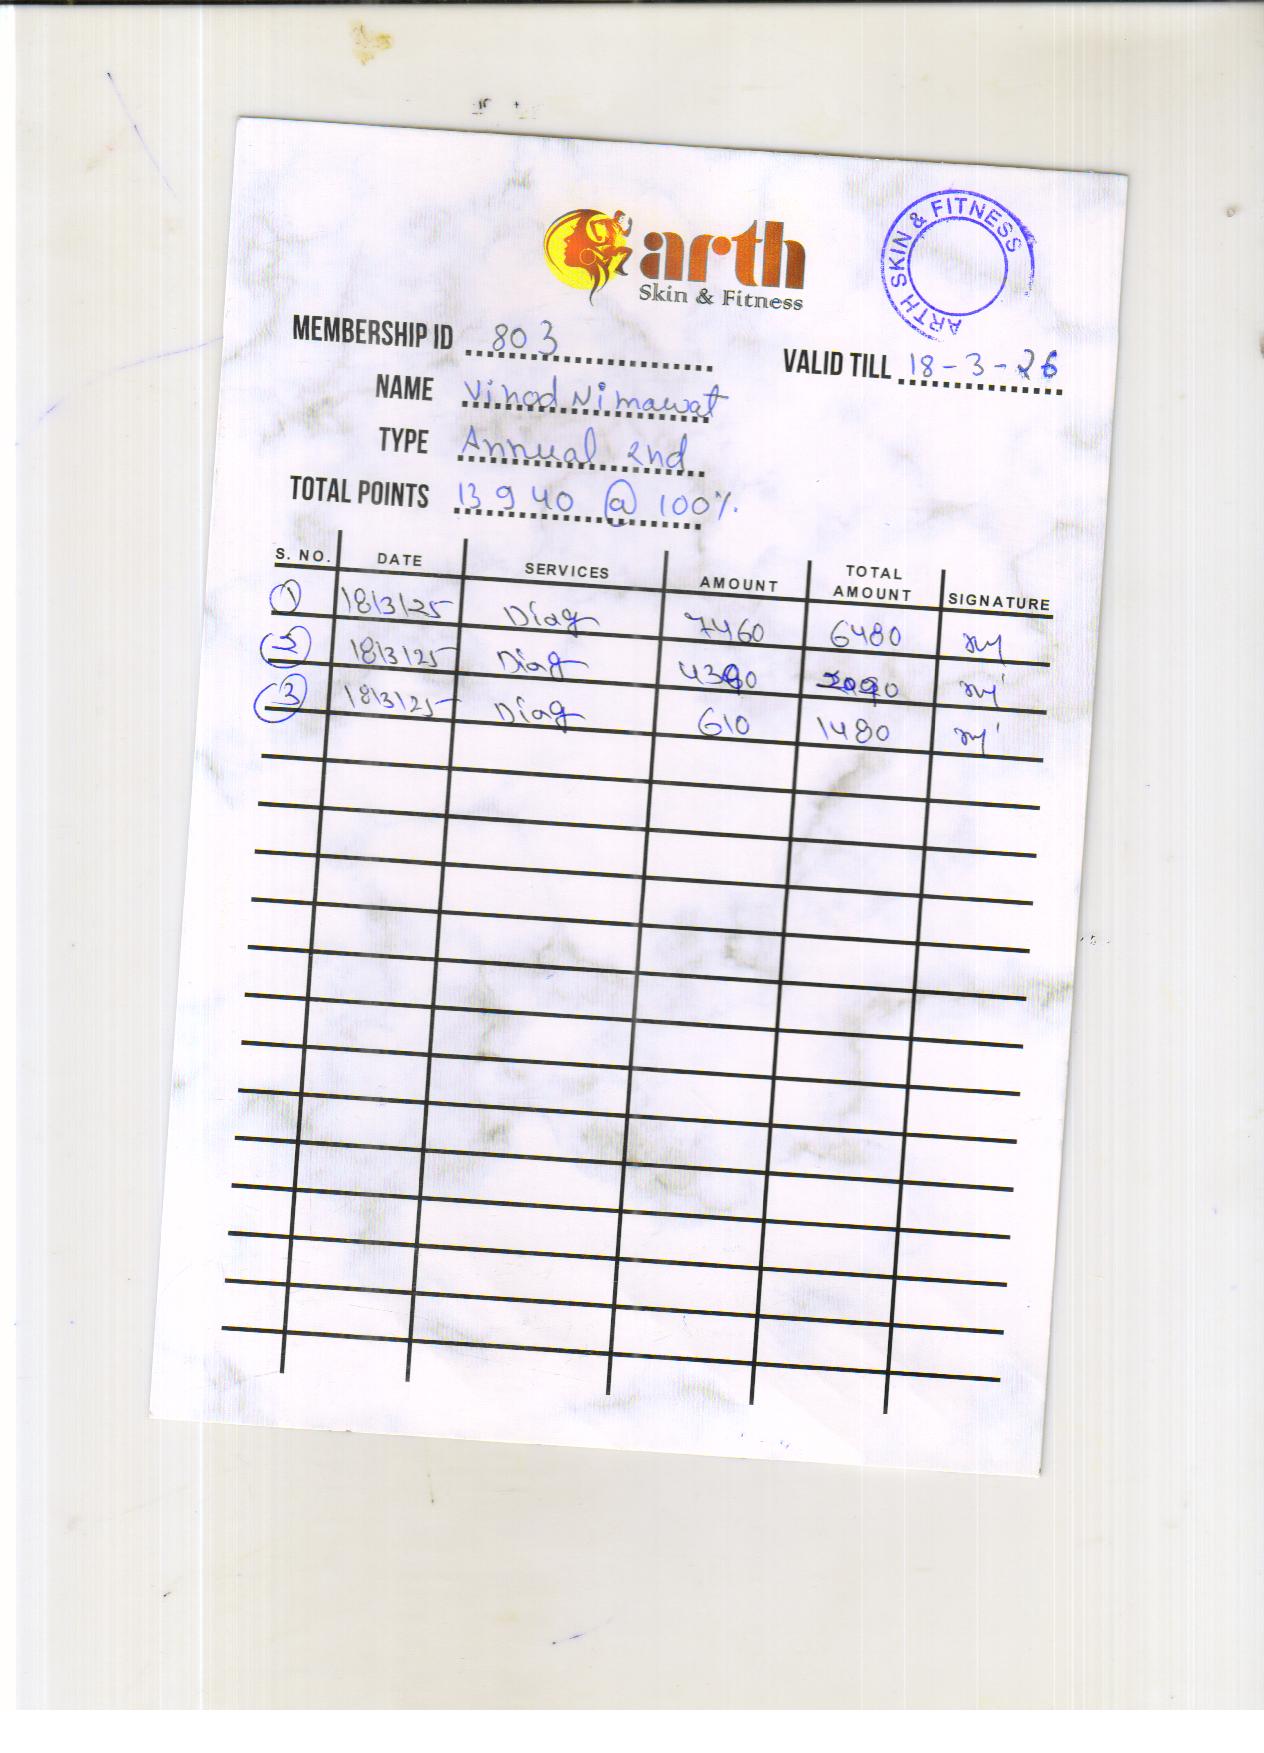 arth
Skin & Fitness
ARTH SKIN & FITNESS
MEMBERSHIP ID 803
VALID TILL 18-3-26
NAME Vinod Nimawat
TYPE Annual 2nd
TOTAL POINTS 13940 @ 100%
S. NO. DATE SERVICES AMOUNT TOTAL AMOUNT SIGNATURE
1 18/3/25 Diag 7460 6480
2 18/3/25 Diag 4390 2090
3 18/3/25 Diag 610 1480